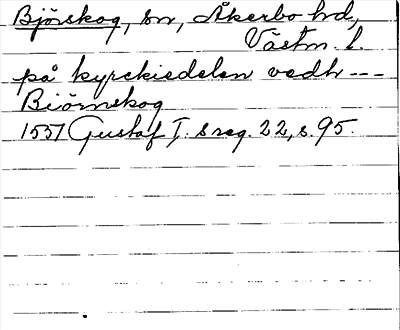 Björskog, sn, Åkerbo hd,
Västm. l.
på kyrckiedelen vedh ---
Biörnskog
1551 Gustaf I. s reg. 22, s. 95.